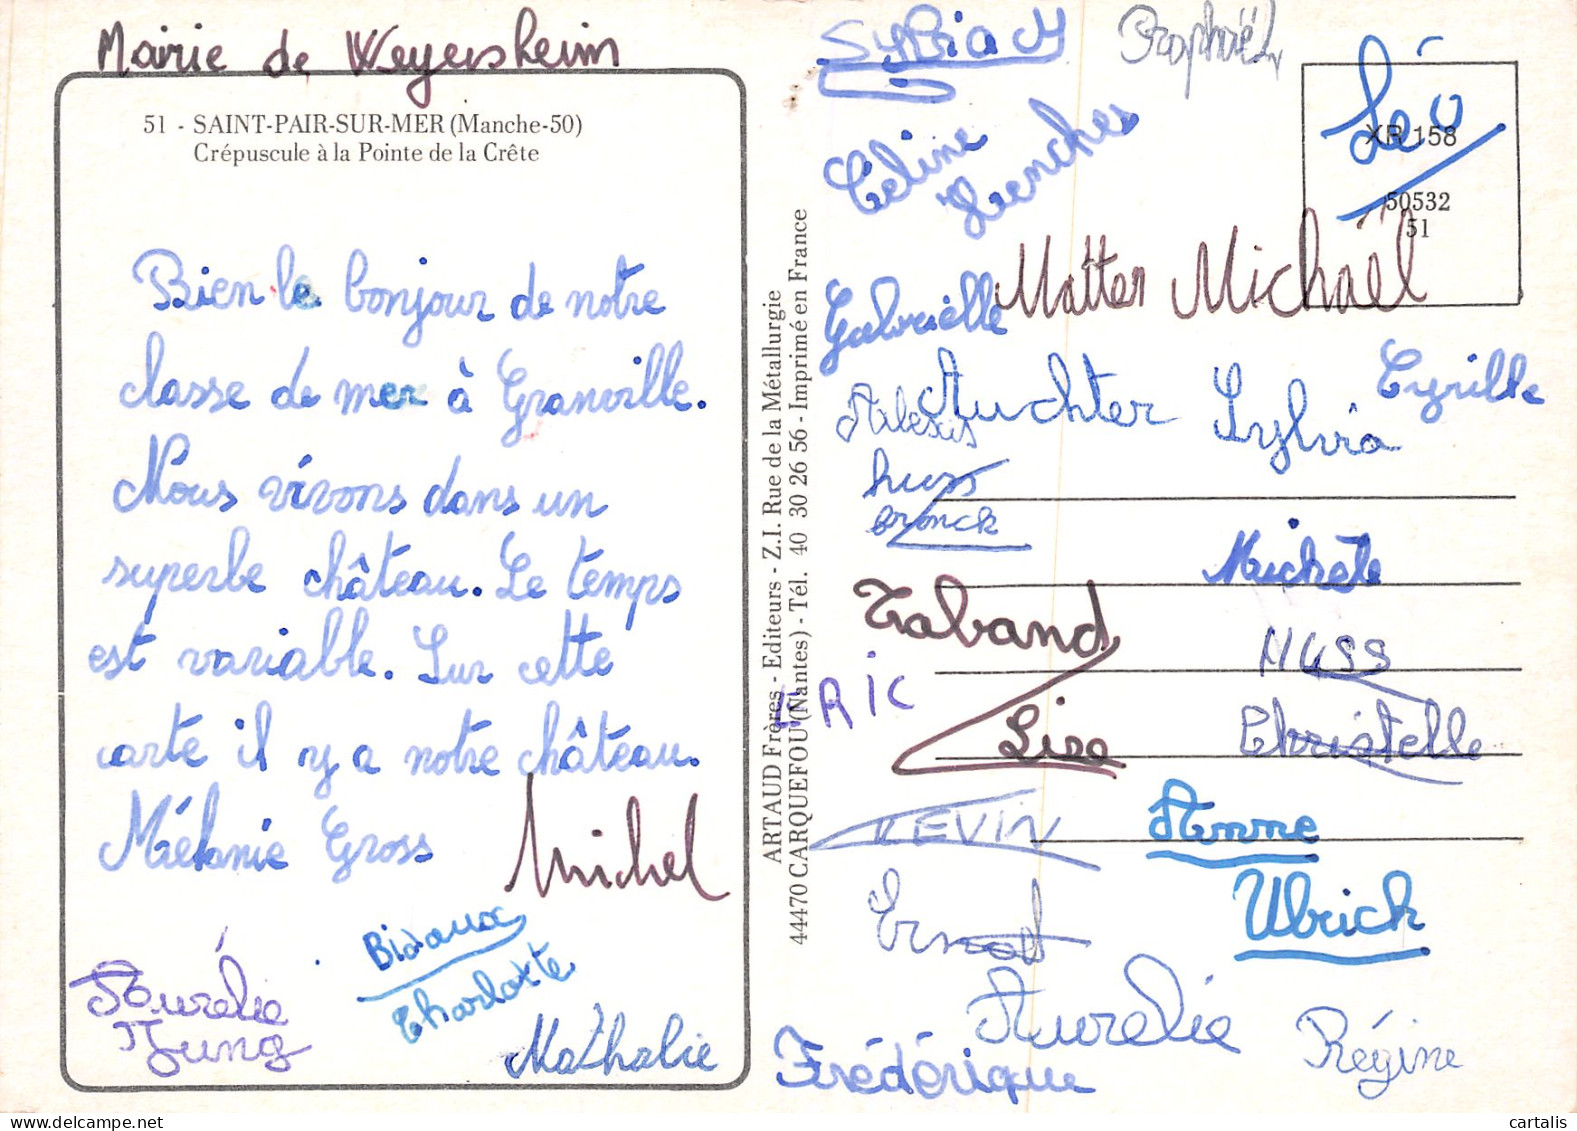 Mairie de Weyersheim
51 - SAINT-PAIR-SUR-MER (Manche-50)
Crépuscule à la Pointe de la Crête
Bien le bonjour de notre
classe de mer à Granville.
Nous vivons dans un
superbe château. Le temps
est variable. Sur cette
carte il y a notre château.
Mélanie Gross
Michel
Aurélie
Jung
Bidaux
Charlotte
Nathalie
ARTAUD Frères - Editeurs - Z.I. Rue de la Métallurgie
44470 CARQUEFOU (Nantes) - Tél. 40 30 26 56 - Imprimé en France
Raphaël
Léo
XR 158
50532
51
Céline
Gabrielle
Matter Michaël
Alexis
Auchter Sylvia
Cyrille
huss
Michèle
Taband
ERIC
Lisa
HUSS
Christelle
KEVIN
Ernst
Anne
Ulrich
Aurélie
Frédérique
Régine